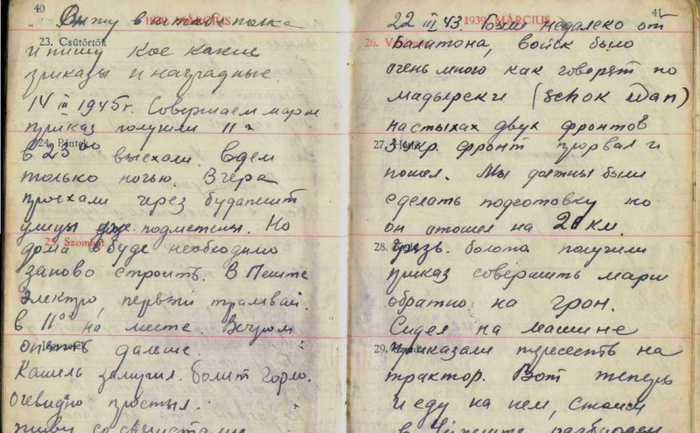 40
1939 MÁRCIUS
Сижу в штабе полка
23. Csütörtök
и пишу кое какие
приказы и наградные
14 III 1945г. Совершаем марш
приказ получили 11го
24. Péntek
в 23 выехали. Едем
только ночью. Вчера
проехали через будапешт
улицы уже подметены. Но
25. Szombat
дома в буде необходимо
заново строить. В Пеште
Электро, первый трамвай.
в 11⁰⁰ на месте. Вечером
опять дальше.
Кашель замучил. болит горло.
очевидно простыл.
41
1939 MÁRCIUS
22 III 43. Были недалеко от
26.
Балатона, войск было
очень много как говорят по
мадьярски (schok van)
на стыках двух фронтов
27.
3 укр. фронт прорвал и
пошел. Мы должны были
сделать подготовку но
он отошел на 20 км.
28.
грязь. болота получили
приказ совершить марш
обратно на грон.
Сидел на машине
29.
приказали пересесть на
трактор. Вот теперь
и еду на нем, стоим